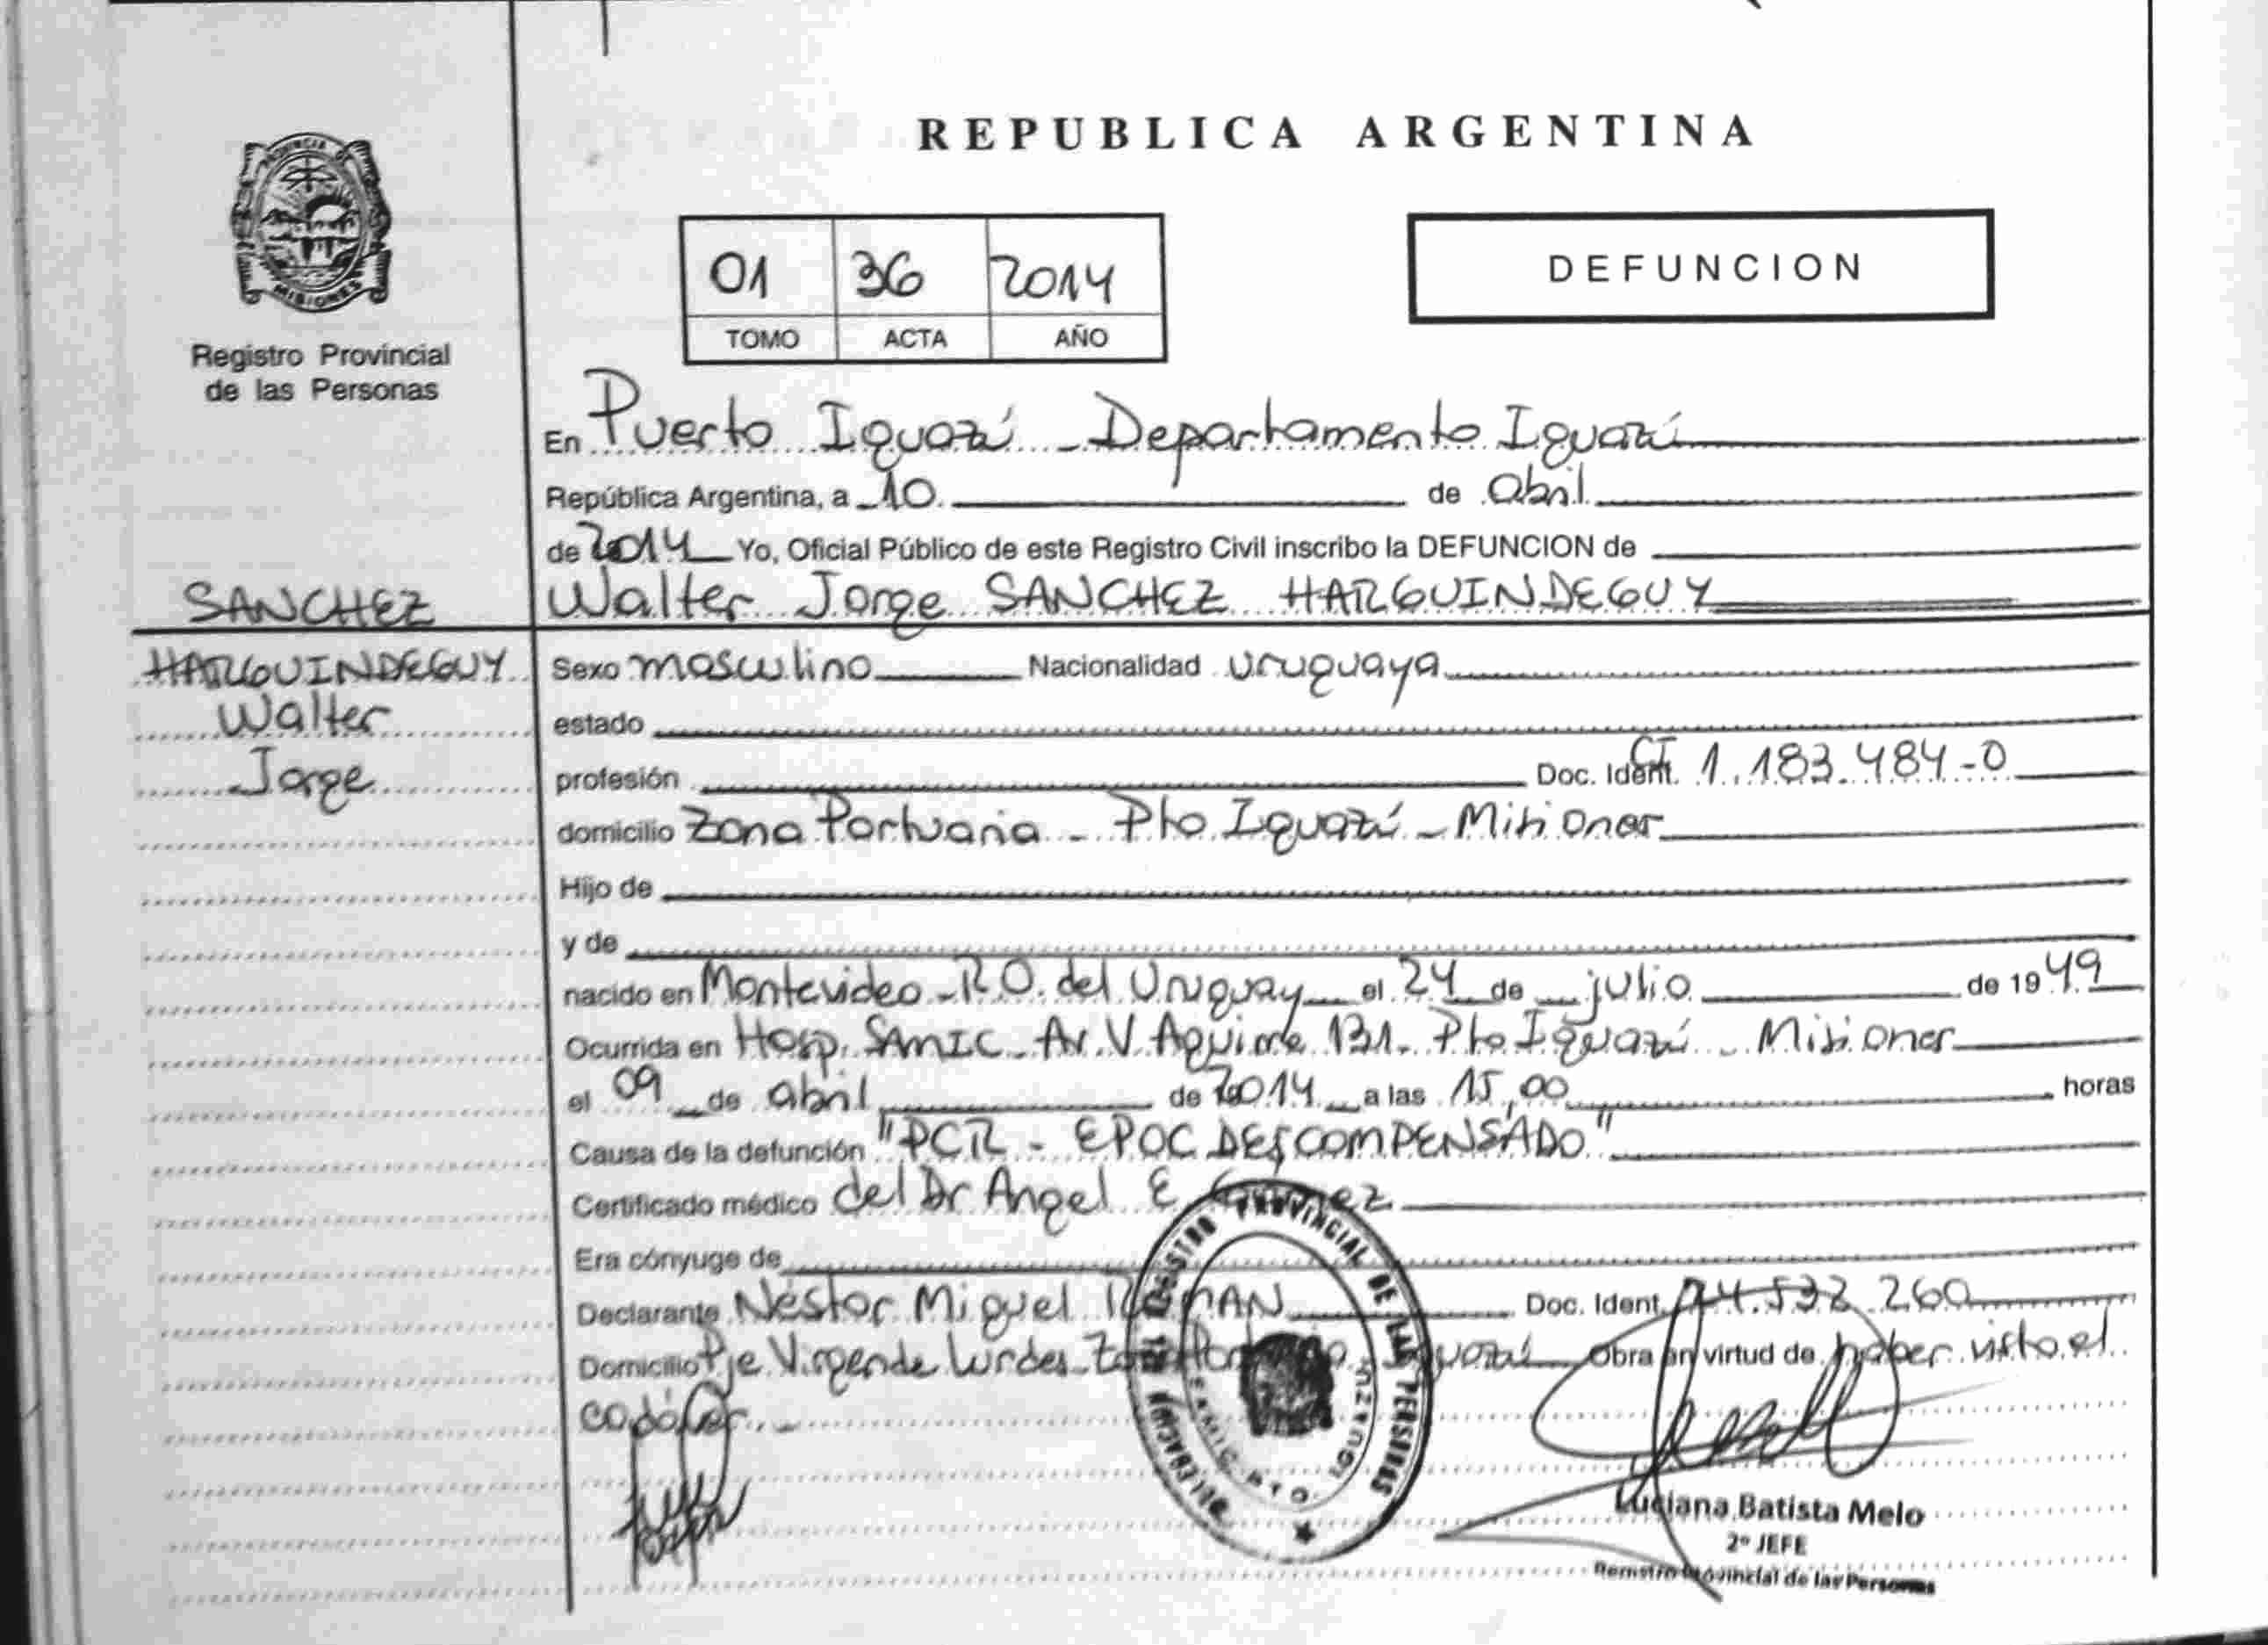 REPUBLICA ARGENTINA
PROVINCIA DE
MISIONES
Registro Provincial
de las Personas
01 36 2014
TOMO ACTA AÑO
DEFUNCION
En Puerto Iguazú - Departamento Iguazú
República Argentina, a 10 de abril
de 2014 Yo, Oficial Público de este Registro Civil inscribo la DEFUNCION de
Walter Jorge SANCHEZ HARGUINDEGUY
SANCHEZ
HARGUINDEGUY
Walter
Jorge
Sexo masculino Nacionalidad uruguaya
estado
profesión Doc. Ident. CI 1.183.484-0
domicilio Zona Portuaria - Pto Iguazú - Misiones
Hijo de
y de
nacido en Montevideo - R.O. del Uruguay el 24 de julio de 1949
Ocurrida en Hosp. SAMIC - Av. V. Aguirre 131 - Pto Iguazú - Misiones
el 09 de abril de 2014 a las 15,00 horas
Causa de la defunción "PCR - EPOC DESCOMPENSADO"
Certificado médico del Dr Angel E.
Era cónyuge de
Declarante Néstor Miguel Doc. Ident. 24.532.260
Domicilio Pje Virgen de Lurdes - Iguazú Obra en virtud de haber visto el
cadáver. -
REGISTRO PROVINCIAL DE LAS PERSONAS
DELEGACION
SAMIC PTO. IGUAZU
Luciana Batista Melo
2º JEFE
Registro Provincial de las Personas